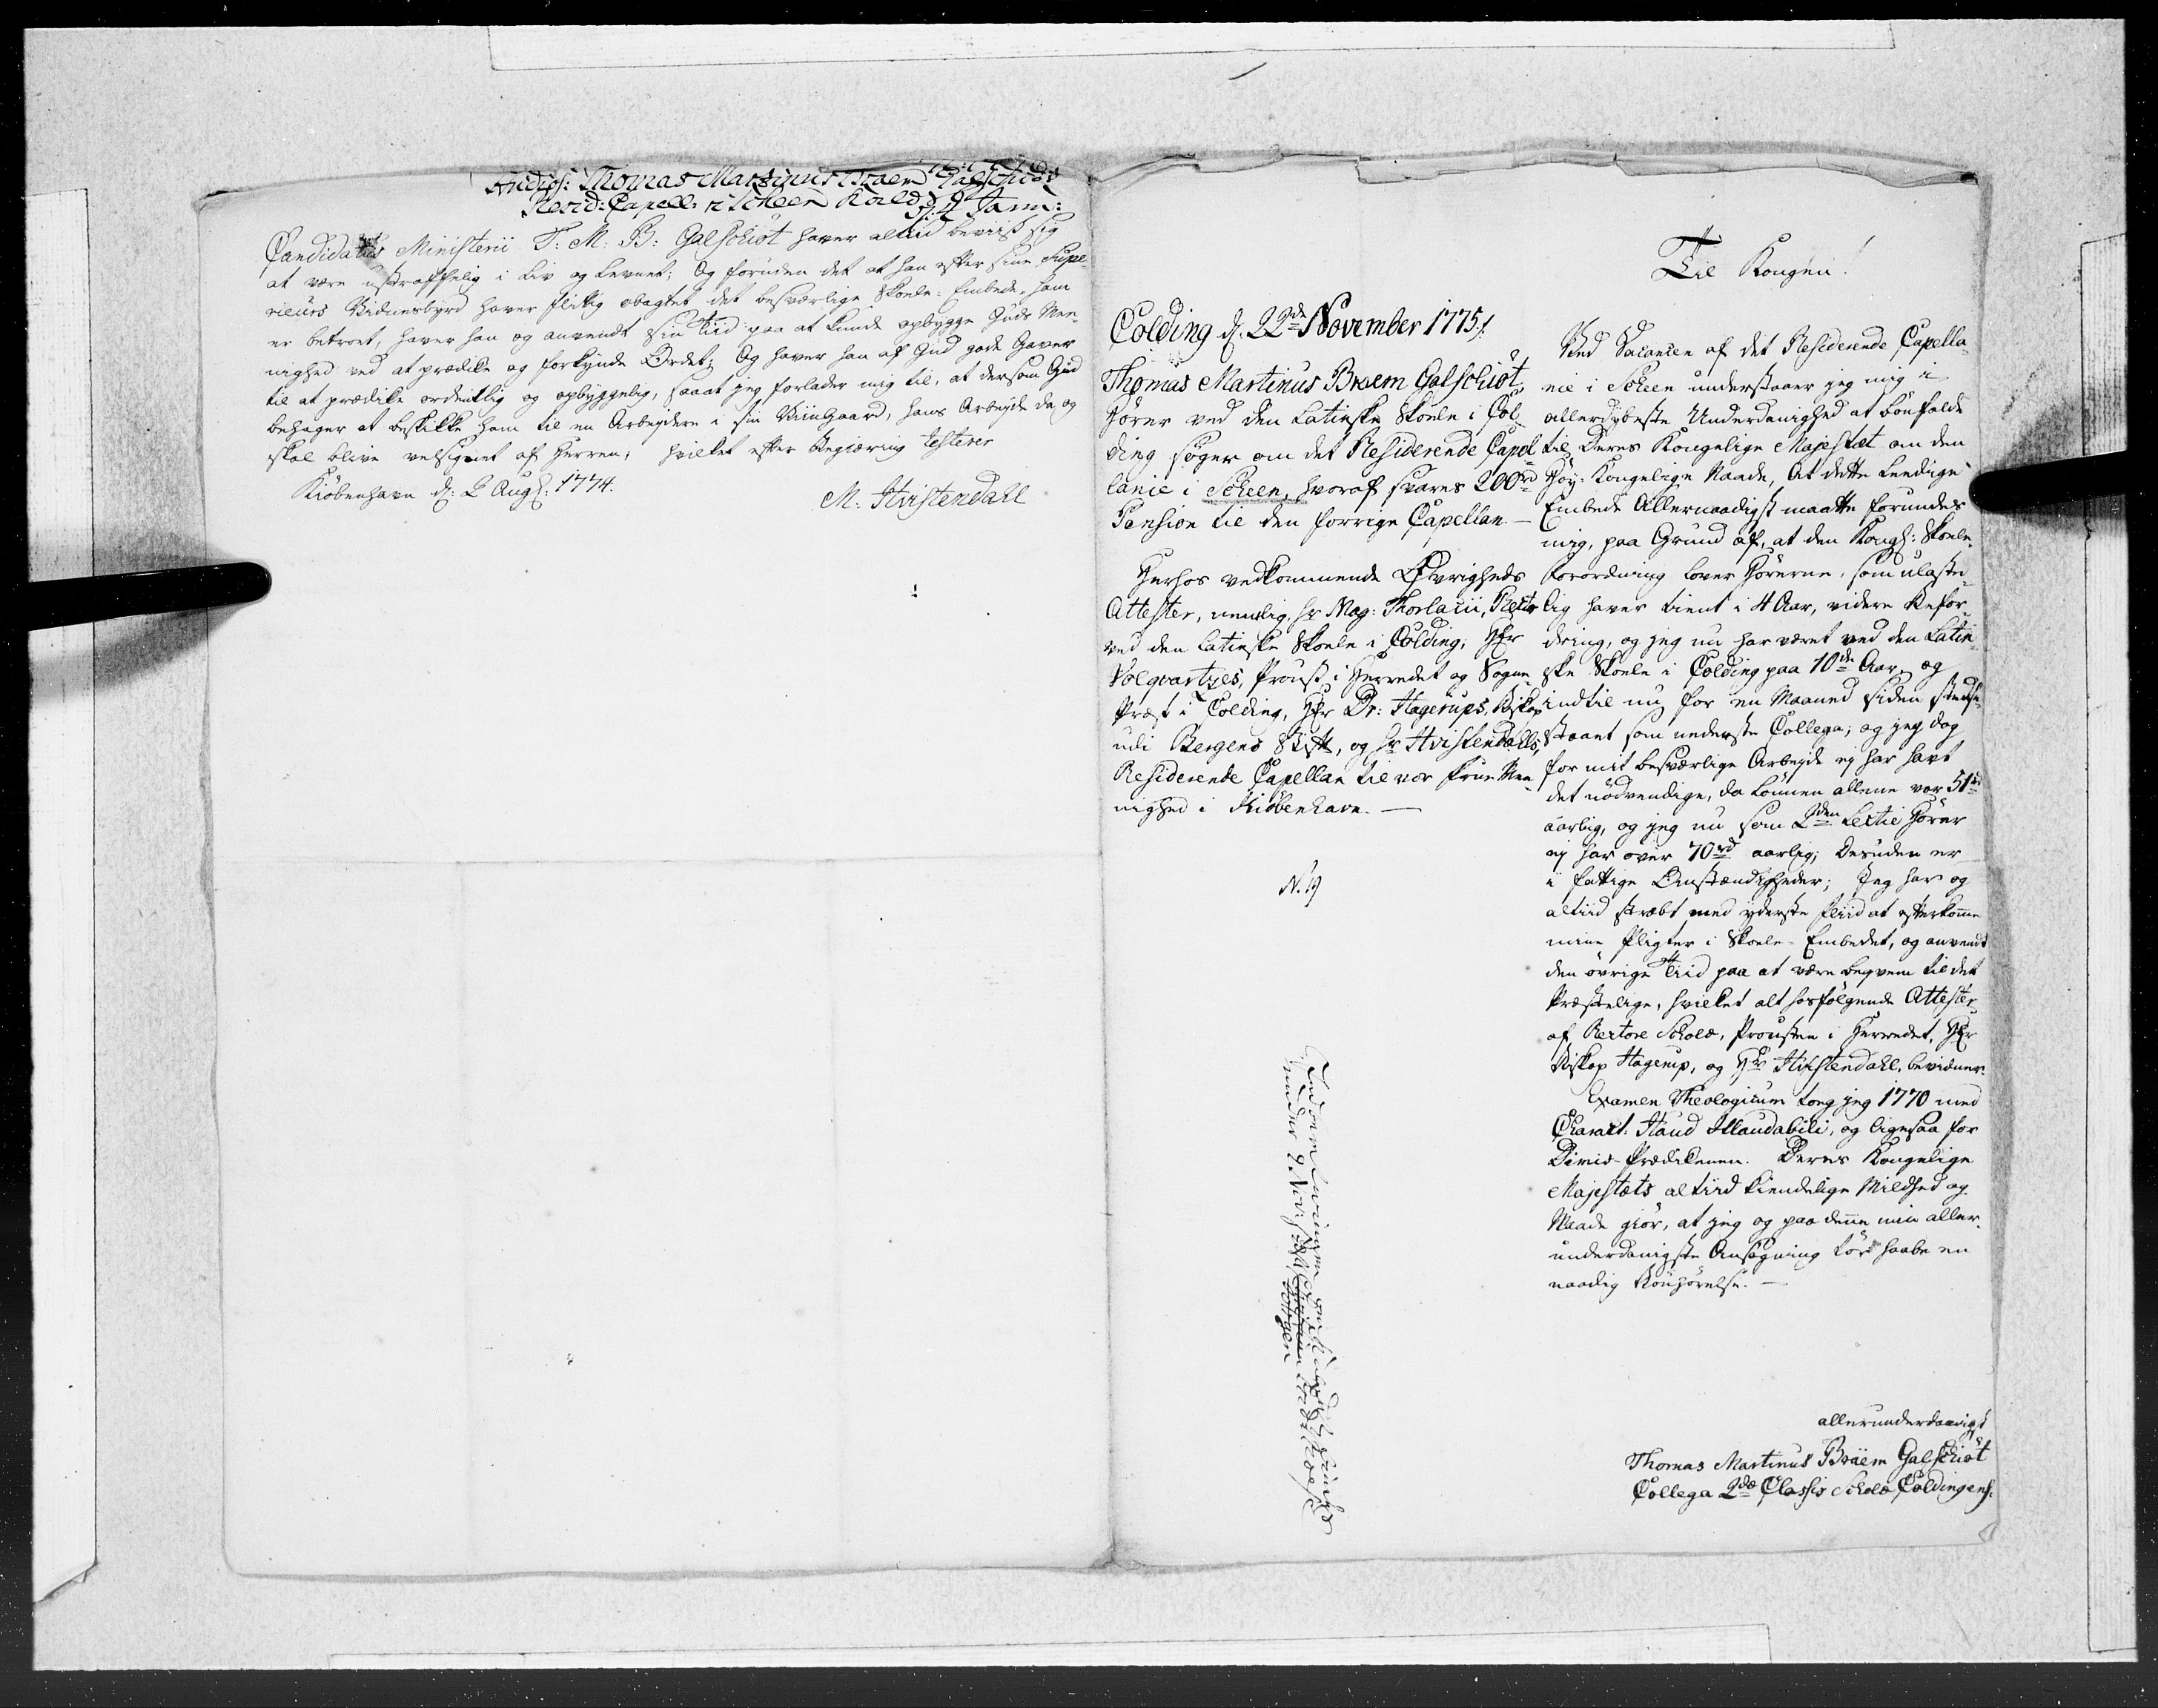 Thomas Martinus Braem Galschiöt
Resid: Capell: i Scheen Kald
Candidatus Ministerii T: M: B: Galschiöt haver altiid beviist sig
at være ustraffelig i Liv og Levnet; Og foruden det at han efter sine Supe-
rieurs Vidnesbyrd haver flittig obagtet det besværlige Skoele-Embede, ham
er betroet, haver han og anvendt sin Tiid paa at kunde opbygge Guds Men-
nighed ved at prædike og forkynde Ordet; Og haver han af Gud gode Gaver
til at prædike ordentlig og opbyggelig, saaat jeg forlader mig til, at dersom Gud
behager at beskikke ham til en Arbejdere i sin Viingaard, hans Arbejde da og
skal blive velsignet af Herren; hvilket efter Begiæring testerer
Kiöbenhavn d: 2 Aug: 1774.
M. Hvistendahl
Colding d: 22de November 1775
Thomas Martinus Braem Galschiöt,
Hörer ved den Latinske Skoele i Col-
ding söger om det Residerende Capel-
lanie i Scheen, hvoraf svares 200rd
Pension til den forrige Capellan. —
Herhos vedkommende Övrigheds
Attester, nemlig, Hr Mag: Thorlacii, Rector
ved den Latinske Skoele i Colding, Hr
Volqvartzes, Proust i Herredet og Sogne-
Præst i Colding, Hr Dr: Hagerups, Biskop
udi Bergens Stift, og Hr Hvistendahls,
Residerende Capellan til vor Frue Me-
nighed i Kiöbenhavn. —
N. 19
Til Kongen!
Ved Vacancen af det Residerende Capella-
nie i Scheen understaaer jeg mig i
allerdybeste Underdanighed at bönfalde
til Deres Kongelige Majestæt om den
Höy-Kongelige Naade, At dette leedige
Embede Allernaadigst maatte forundes
mig, paa Grund af, at den Kongl: Skoele-
forordning lover Hörerne, som ulaste-
lig haver tient i 4 Aar, videre Befor-
dring, og jeg nu har været ved den Latin-
ske Skoele i Colding paa 10de Aar, og
indtil nu for en Maaned siden stedse
staaet som nederste Collega; og jeg dog
for mit besværlige Arbejde ej har havt
det nödvendige, da Lönnen allene var 51rd
aarlig, og jeg nu som 2den Lectie Hörer
ej har over 70rd aarlig; Desuden er
i fattige Omstændigheder; Jeg har og
altiid stræbt med yderste Fliid at efterkomme
mine Pligter i Skoele-Embedet, og anvendt
den övrige Tiid paa at være beqvem til det
Præstelige, hvilket alt hosfölgende Attester
af Rectore Scholæ, Prousten i Herredet, Hr
Biskop Hagerup, og Hr Hvistendahl, bevidner.
Examen Theologicum tog jeg 1770 med
Charact: Haud Illaudabili, og ligesaa for
Dimis-Prædikenen. Deres Kongelige
Majestæts altiid kiendelige Mildhed og
Naade giör, at jeg og paa denne min aller-
underdanigste Ansögning tör haabe en
naadig Bönhörelse. —
allerunderdanigst
Thomas Martinus Bräem Galschiöt
Collega 2dæ Classis Scholæ Coldingens: